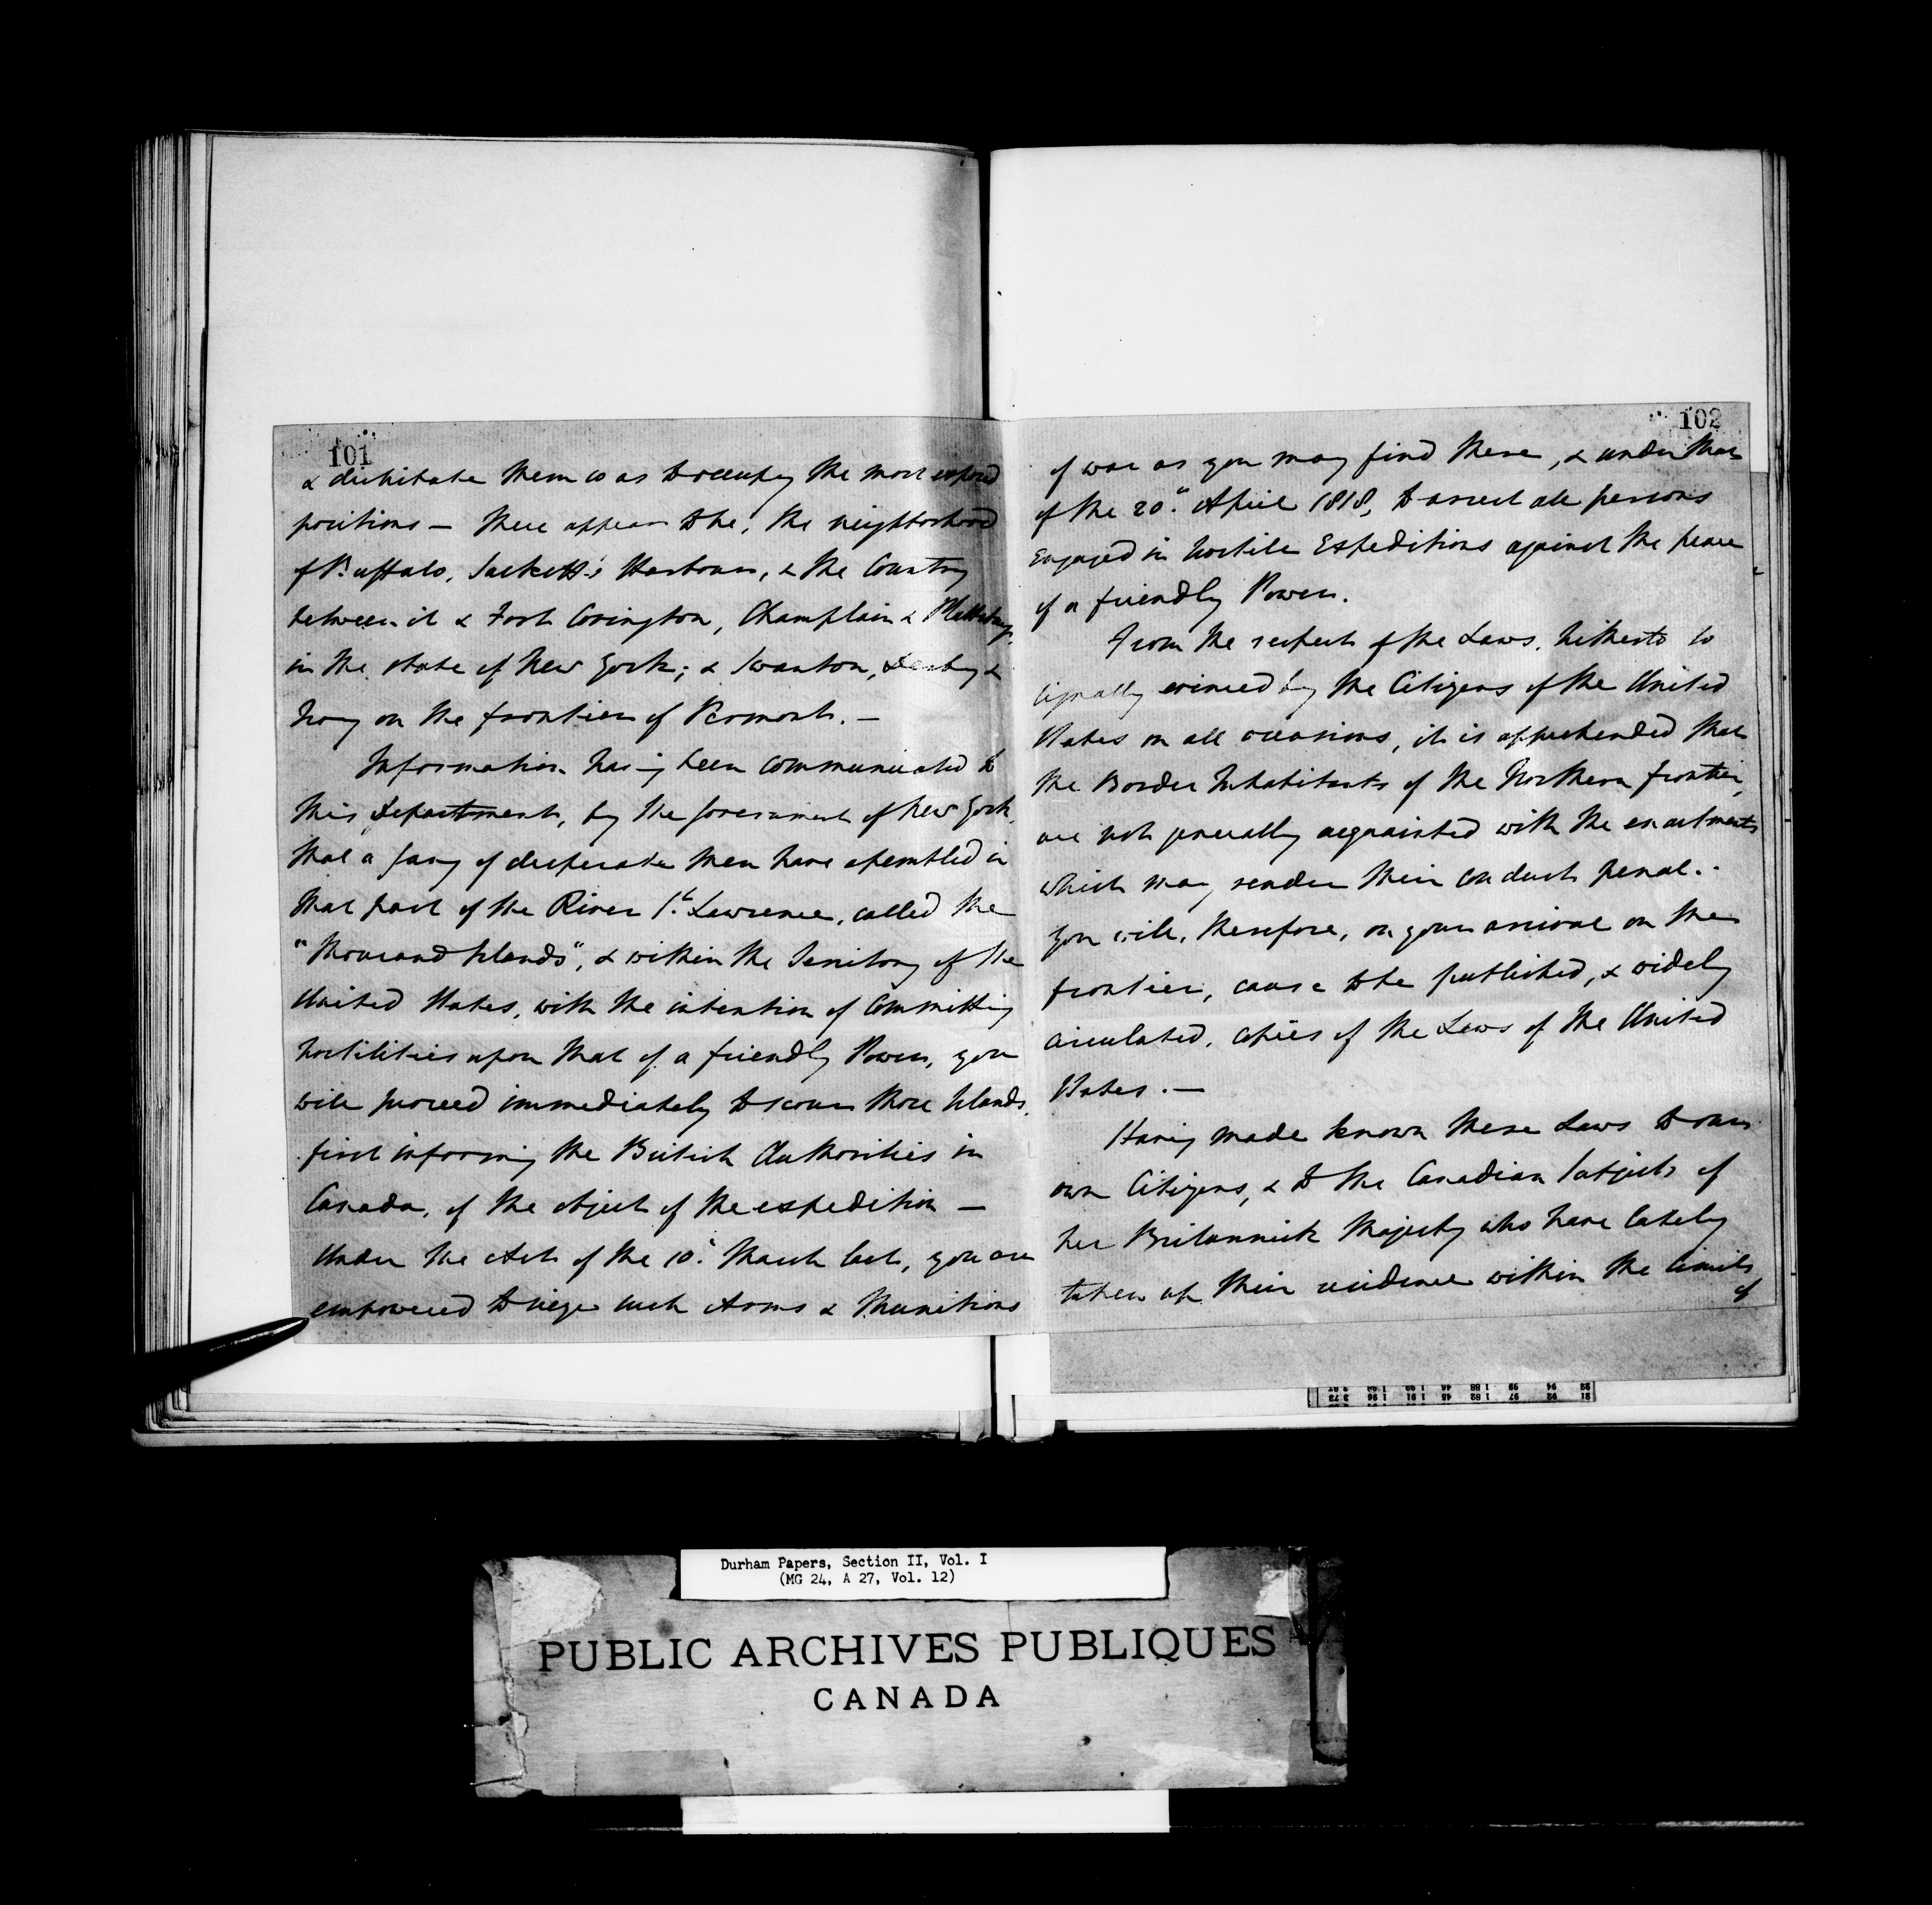 101
& distribute them so as to occupy the most exposed
positions — these appear to be, the neighborhood
of Buffalo, Sackett's Harbour, & the Country
between it & Fort Covington, Champlain & Plattsburg,
in the state of New York; & Swanton, Derby &
Troy on the frontier of Vermont. —
Information having been communicated to
this Department, by the Government of New York,
that a gang of desperate men have assembled in
that part of the River St. Lawrence, called the
"Thousand Islands", & within the Territory of the
United States, with the intention of Committing
hostilities upon that of a friendly Power, you
will proceed immediately to scour those Islands,
first informing the British Authorities in
Canada, of the object of the expedition —
Under the Act of the 10th March last, you are
empowered to seize such Arms & Munitions
102
of war as you may find there, & under that
of the 20th April 1818, to arrest all persons
engaged in hostile Expeditions against the peace
of a friendly Power.
From the respect of the Laws, hitherto so
signally evinced by the Citizens of the United
States on all occasions, it is apprehended that
the Border Inhabitants of the Northern frontier,
are not generally acquainted with the enactments
which may render their conduct penal. -
You will, therefore, on your arrival on the
frontier, cause to be published, & widely
circulated, copies of the Laws of the United
States. —
Having made known these Laws to our
own Citizens, & to the Canadian subjects of
her Britannick Majesty who have lately
taken up their residence within the limits
of
Durham Papers, Section II, Vol. I
(MG 24, A 27, Vol. 12)
PUBLIC ARCHIVES PUBLIQUES
CANADA